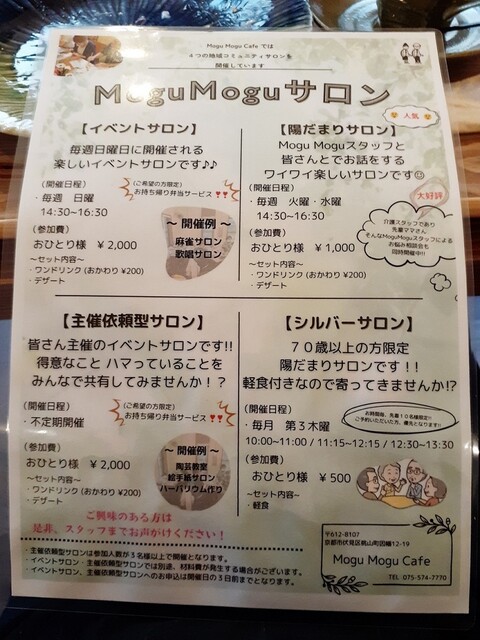 Mogu Mogu Cafe では
４つの地域コミュニティサロンを
開催しています
MoguMoguサロン
人気
【イベントサロン】
毎週日曜日に開催される
楽しいイベントサロンです♪♪
(開催日程)
・毎週　日曜
14:30~16:30
(ご希望の方限定)
お持ち帰り弁当サービス❢❢
(参加費)
おひとり様　￥2,000
～セット内容～
・ワンドリンク (おかわり ¥200)
・デザート
～ 開催例 ～
麻雀サロン
歌唱サロン
【陽だまりサロン】
Mogu Moguスタッフと
皆さんとでお話をする
ワイワイ楽しいサロンです☺
(開催日程)
・毎週　火曜・水曜
14:30~16:30
(参加費)
おひとり様　￥1,000
～セット内容～
・ワンドリンク (おかわり ¥200)
・デザート
大好評
介護スタッフであり
先輩ママさん
そんなMoguMoguスタッフによる
お悩み相談会も
同時開催中!!
【主催依頼型サロン】
皆さん主催のイベントサロンです!!
得意なこと ハマっていることを
みんなで共有してみませんか！？
(開催日程)
・不定期開催
(ご希望の方限定)
お持ち帰り弁当サービス❢❢
(参加費)
おひとり様　￥2,000
～セット内容～
・ワンドリンク (おかわり ¥200)
・デザート
～ 開催例 ～
陶芸教室
絵手紙サロン
ハーバリウム作り
ご興味のある方は
是非、スタッフまでお声がけください！
【シルバーサロン】
７０歳以上の方限定
陽だまりサロンです！！
軽食付きなので寄ってきませんか!?
(開催日程)
・毎月　第３木曜
10:00~11:00 / 11:15~12:15 / 12:30~13:30
各時間帯、先着１０名様限定!!
ご予約いただいた方、優先となります!!
(参加費)
おひとり様　￥500
～セット内容～
・軽食
・主催依頼型サロンは参加人数が３名様以上で開催となります。
・イベントサロン・主催依頼型サロンでは別途、材料費が発生する場合がございます。
・イベントサロン、主催依頼型サロンへのお申込は開催日の３日前までとなります。
〒612-8107
京都市伏見区桃山町因幡12-19
Mogu Mogu Cafe
TEL 075-574-7770